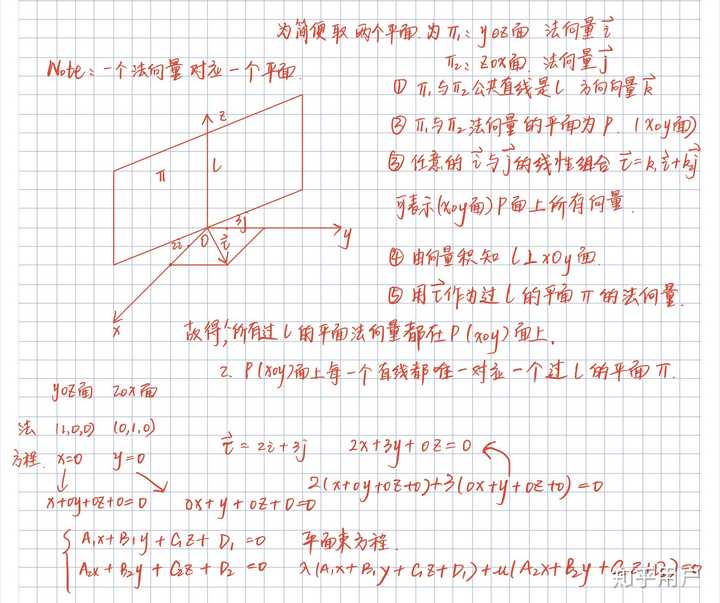 为简便取两个平面为 π₁: yoz面 法向量 i⃗
π₂: zox面. 法向量 j⃗
Note: 一个法向量对应一个平面.
① π₁与π₂公共直线是 l 方向向量 k⃗
② π₁与π₂法向量的平面为 P. (xoy面)
③ 任意的 i⃗ 与 j⃗ 的线性组合 τ⃗ = k₁i⃗ + k₂j⃗
可表示(xoy面) P面上所有向量.
④ 由向量积知 l⊥xOy面.
⑤ 用τ⃗作为过 l 的平面 π 的法向量.
z
π
l
3j
2i
O
τ⃗
y
x
故得: 1. 所有过 l 的平面法向量都在 P (xoy) 面上.
2. P(xoy)面上每一个直线都唯一对应一个过 l 的平面 π.
yoz面 zox面
法 (1,0,0) (0,1,0)
方程. x=0 y=0
τ⃗ = 2i+3j 2x+3y+0z=0
2(x+0y+0z+0)+3(0x+y+0z+0)=0
x+0y+0z+0=0 0x+y+0z+0=0
A₁x+B₁y+C₁z+D₁=0 平面束方程.
A₂x+B₂y+C₂z+D₂=0 λ(A₁x+B₁y+C₁z+D₁)+μ(A₂x+B₂y+C₂z+D₂)=0
知乎用户